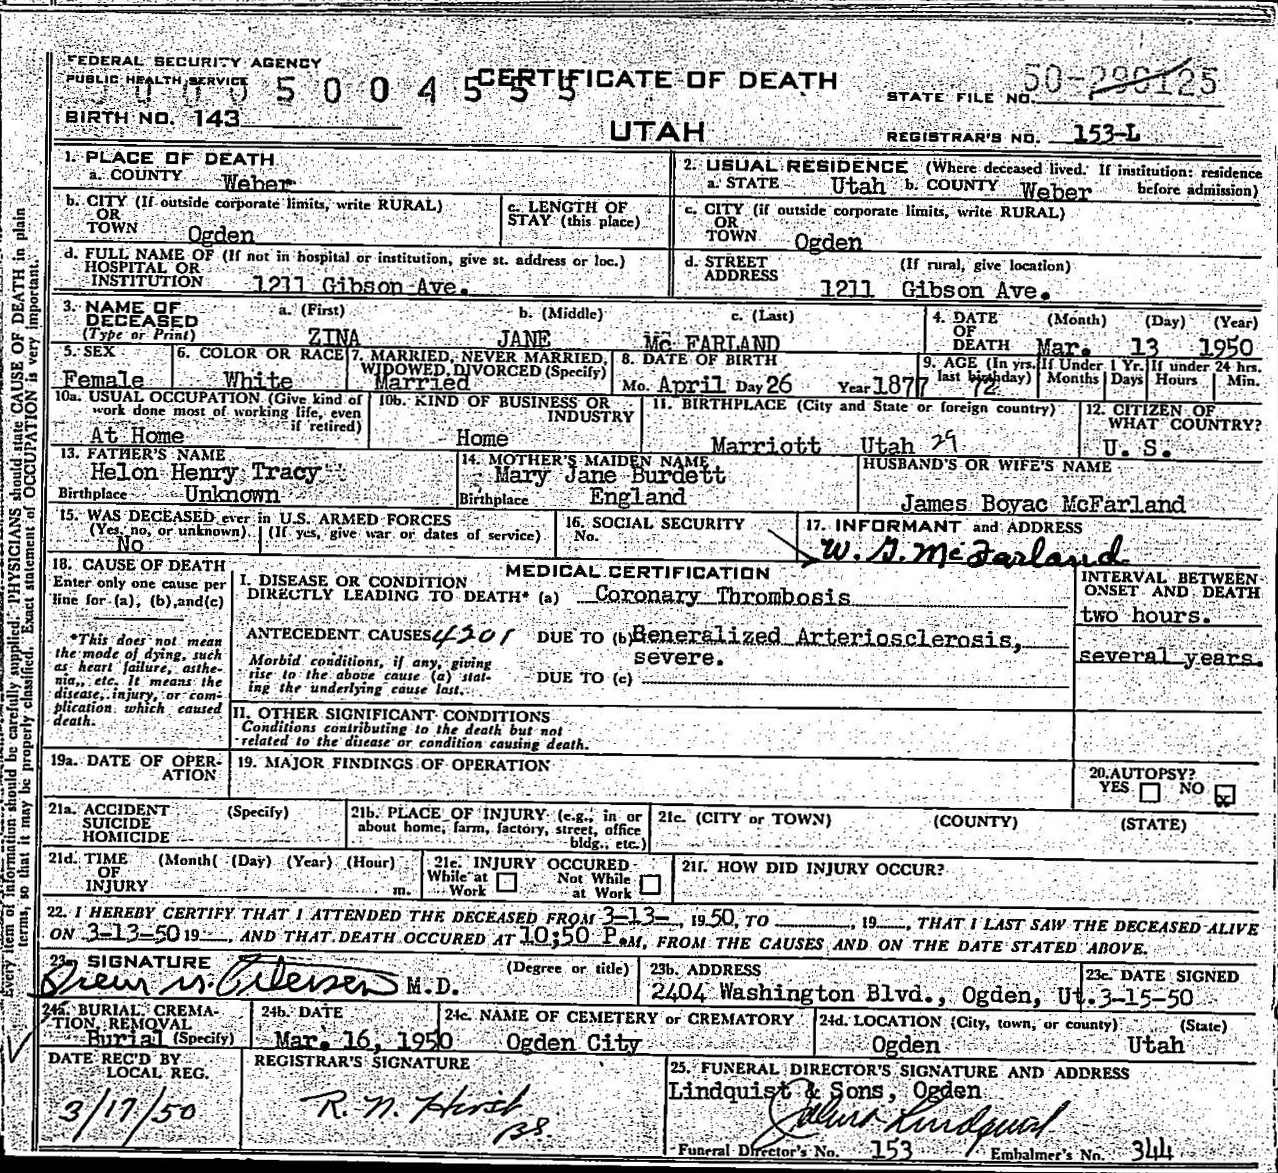 FEDERAL SECURITY AGENCY
PUBLIC HEALTH SERVICE
CERTIFICATE OF DEATH
STATE FILE NO. 50-290125
BIRTH NO. 143
UTAH
REGISTRAR'S NO. 153-L
Every item of information should be carefully supplied. PHYSICIANS should state CAUSE OF DEATH in plain
terms, so that it may be properly classified. Exact statement of OCCUPATION is very important.
1. PLACE OF DEATH
a. COUNTY Weber
2. USUAL RESIDENCE (Where deceased lived. If institution: residence
a. STATE Utah b. COUNTY Weber before admission)
b. CITY (If outside corporate limits, write RURAL)
OR
TOWN Ogden
c. LENGTH OF
STAY (this place)
c. CITY (if outside corporate limits, write RURAL)
OR
TOWN Ogden
d. FULL NAME OF (If not in hospital or institution, give st. address or loc.)
HOSPITAL OR
INSTITUTION 1211 Gibson Ave.
d. STREET (If rural, give location)
ADDRESS
1211 Gibson Ave.
3. NAME OF a. (First) b. (Middle) c. (Last)
DECEASED
(Type or Print) ZINA JANE Mc FARLAND
4. DATE (Month) (Day) (Year)
OF
DEATH Mar. 13 1950
5. SEX
Female
6. COLOR OR RACE
White
7. MARRIED, NEVER MARRIED,
WIDOWED, DIVORCED (Specify)
Married
8. DATE OF BIRTH
Mo. April Day 26 Year 1877
9. AGE (In yrs.
last birthday) 72
If Under 1 Yr.
Months Days
If under 24 hrs.
Hours Min.
10a. USUAL OCCUPATION (Give kind of
work done most of working life, even
if retired)
At Home
10b. KIND OF BUSINESS OR
INDUSTRY
Home
11. BIRTHPLACE (City and State or foreign country)
Marriott Utah 29
12. CITIZEN OF
WHAT COUNTRY?
U. S.
13. FATHER'S NAME
Helon Henry Tracy
Birthplace Unknown
14. MOTHER'S MAIDEN NAME
Mary Jane Burdett
Birthplace England
HUSBAND'S OR WIFE'S NAME
James Boyac McFarland
15. WAS DECEASED ever in U.S. ARMED FORCES
(Yes, no, or unknown) (If yes, give war or dates of service)
No
16. SOCIAL SECURITY
No.
17. INFORMANT and ADDRESS
W. G. McFarland
18. CAUSE OF DEATH
Enter only one cause per
line for (a), (b), and (c)
*This does not mean
the mode of dying, such
as heart failure, asthe-
nia, etc. It means the
disease, injury, or com-
plication which caused
death.
MEDICAL CERTIFICATION
I. DISEASE OR CONDITION
DIRECTLY LEADING TO DEATH* (a) Coronary Thrombosis
ANTECEDENT CAUSES 4201 DUE TO (b) Generalized Arteriosclerosis,
severe.
Morbid conditions, if any, giving
rise to the above cause (a) stat-
ing the underlying cause last.
DUE TO (c)
INTERVAL BETWEEN
ONSET AND DEATH
two hours.
several years.
II. OTHER SIGNIFICANT CONDITIONS
Conditions contributing to the death but not
related to the disease or condition causing death.
19a. DATE OF OPER-
ATION
19. MAJOR FINDINGS OF OPERATION
20. AUTOPSY?
YES NO x
21a. ACCIDENT (Specify)
SUICIDE
HOMICIDE
21b. PLACE OF INJURY (e.g., in or
about home, farm, factory, street, office
bldg., etc.)
21c. (CITY or TOWN) (COUNTY) (STATE)
21d. TIME (Month( (Day) (Year) (Hour)
OF
INJURY m.
21e. INJURY OCCURED
While at Not While
Work at Work
21f. HOW DID INJURY OCCUR?
22. I HEREBY CERTIFY THAT I ATTENDED THE DECEASED FROM 3-13-, 1950, TO , 19 , THAT I LAST SAW THE DECEASED ALIVE
ON 3-13-50 19 , AND THAT DEATH OCCURED AT 10;50 P.M, FROM THE CAUSES AND ON THE DATE STATED ABOVE.
23a SIGNATURE (Degree or title)
M.D.
23b. ADDRESS
2404 Washington Blvd., Ogden, Ut.
23c. DATE SIGNED
3-15-50
24a. BURIAL, CREMA-
TION, REMOVAL
Burial (Specify)
24b. DATE
Mar. 16, 1950
24c. NAME OF CEMETERY or CREMATORY
Ogden City
24d. LOCATION (City, town, or county) (State)
Ogden Utah
DATE REC'D BY
LOCAL REG.
3/17/50
REGISTRAR'S SIGNATURE
R. N. Hirst
25. FUNERAL DIRECTOR'S SIGNATURE AND ADDRESS
Lindquist & Sons, Ogden
Lindquist
Funeral Director's No. 153 Embalmer's No. 344